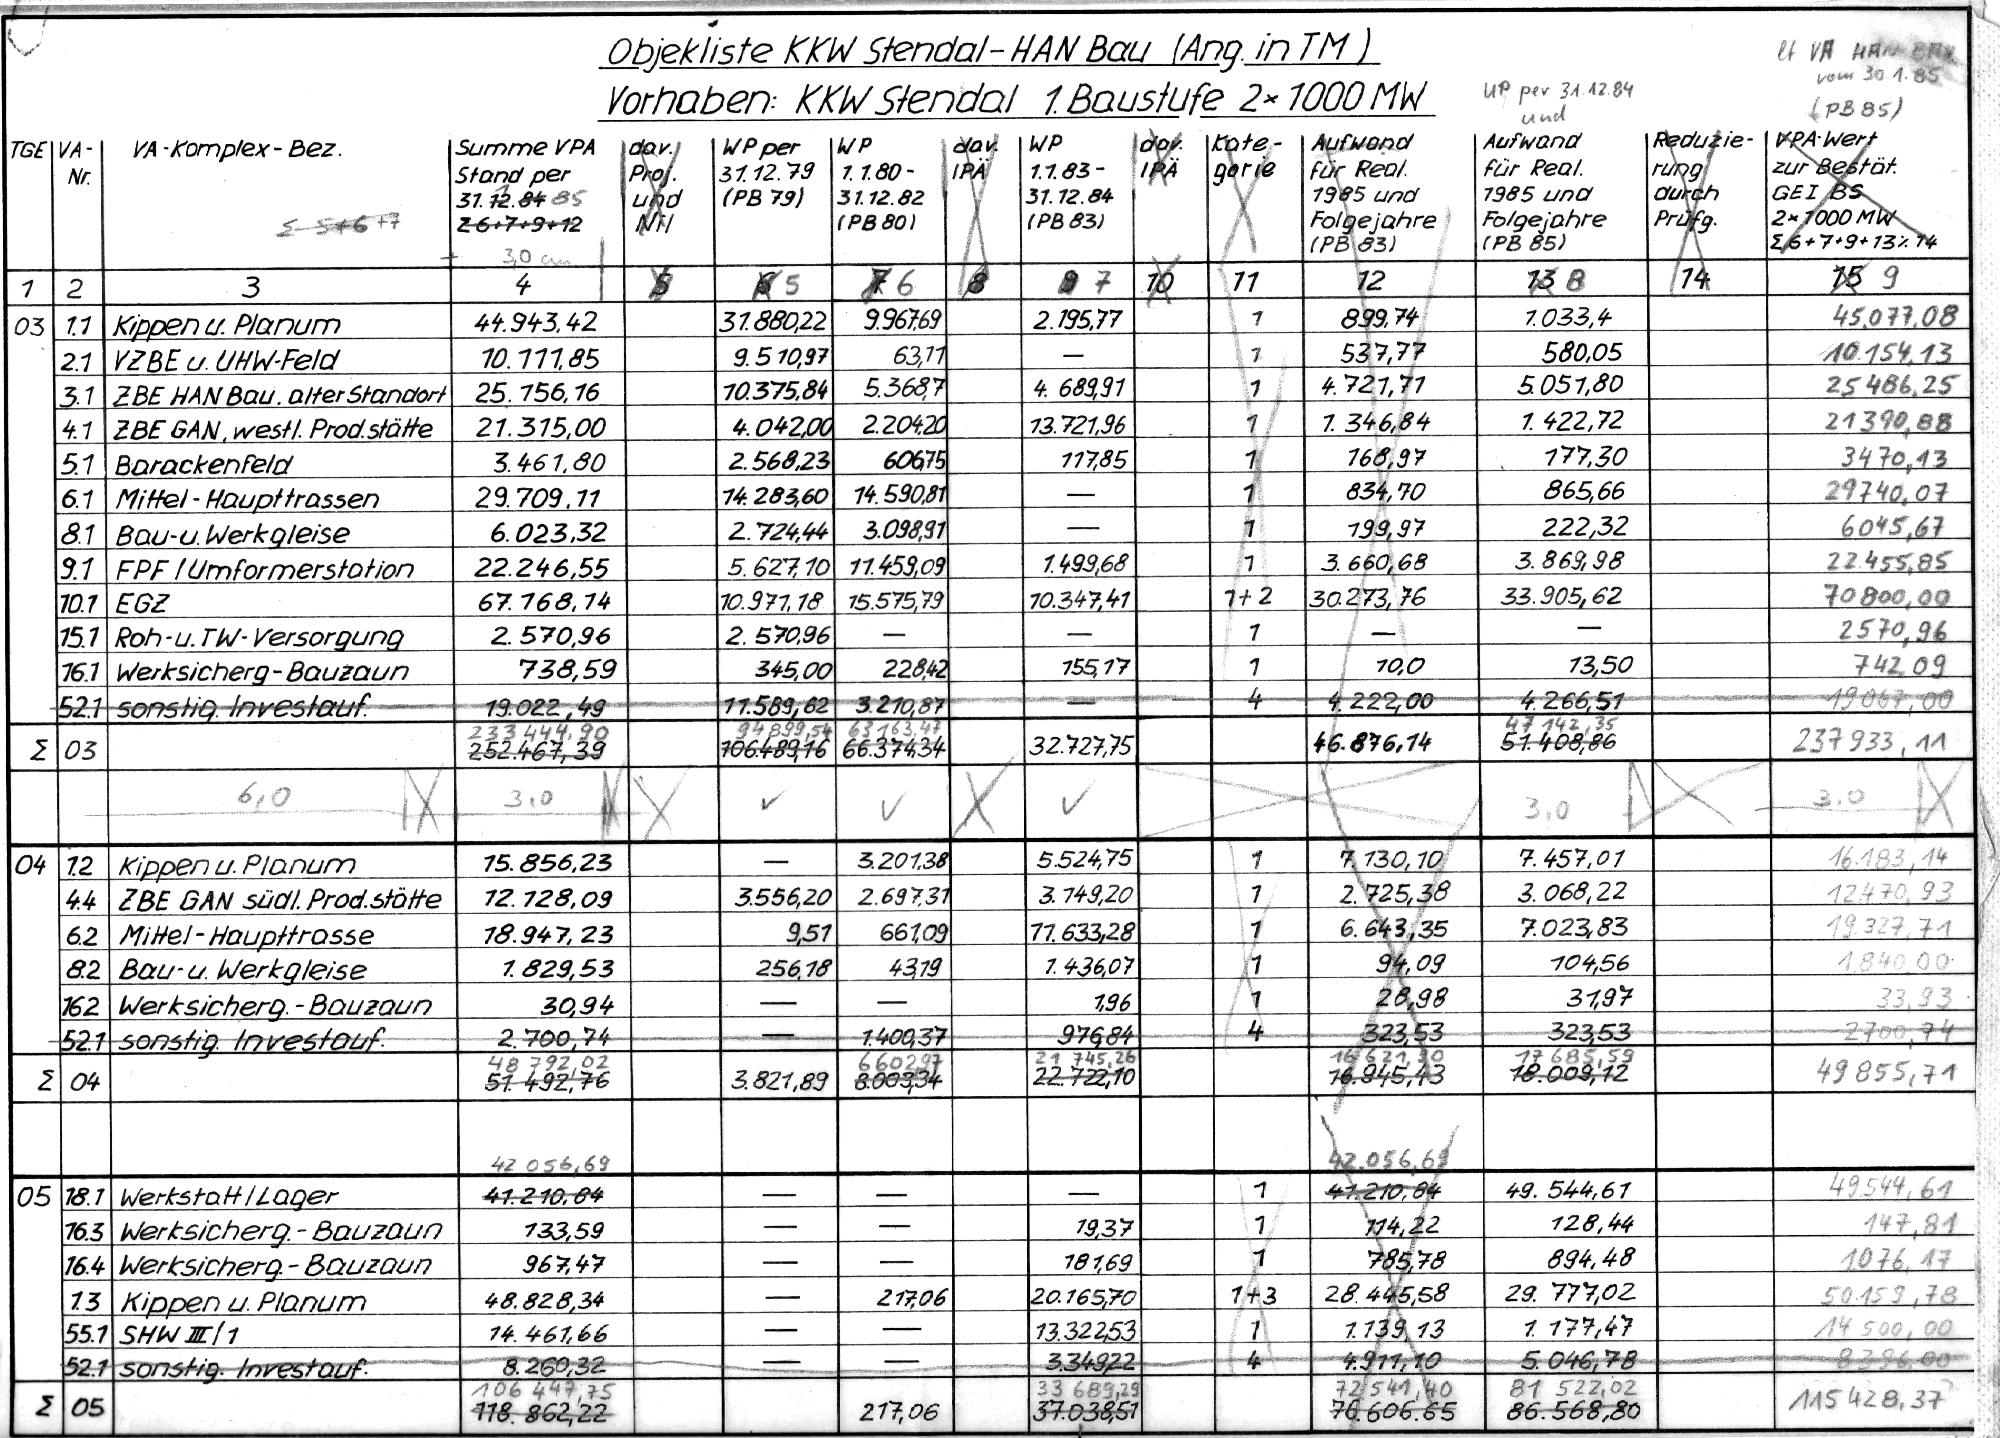 Objekliste KKW Stendal-HAN Bau (Ang. in TM)
Vorhaben: KKW Stendal 1. Baustufe 2×1000 MW
lt VA HAN BAU
vom 30.1.85
(PB 85)
UP per 31.12.84
und
TGE VA-Nr. VA-Komplex-Bez. Summe VPA Stand per 31.12.84 85 Σ 6+7+9+12 dav. Proj. und Nil WP per 31.12.79 (PB 79) WP 1.1.80-31.12.82 (PB 80) dav. IPÄ WP 1.1.83-31.12.84 (PB 83) dav. IPÄ Kategorie Aufwand für Real. 1985 und Folgejahre (PB 83) Aufwand für Real. 1985 und Folgejahre (PB 85) Reduzierung durch Prüfg. VPA-Wert zur Bestät. GEI BS 2×1000 MW Σ 6+7+9+13 ٪ 14
Σ 5+6+7
3,0 cm
1 2 3 4 5 6 5 7 6 8 9 7 10 11 12 13 8 14 15 9
03 1.1 Kippen u. Planum 44.943,42 31.880,22 9.967,69 2.195,77 1 899,74 1.033,4 45.077,08
2.1 VZBE u. UHW-Feld 10.111,85 9.510,97 63,11 — 1 537,77 580,05 10.154,13
3.1 ZBE HAN Bau. alter Standort 25.756,16 10.375,84 5.368,7 4.689,91 1 4.721,71 5.051,80 25486,25
4.1 ZBE GAN, westl. Prod.stätte 21.315,00 4.042,00 2.204,20 13.721,96 1 1.346,84 1.422,72 21390,88
5.1 Barackenfeld 3.461,80 2.568,23 606,75 117,85 1 168,97 177,30 3470,13
6.1 Mittel-Haupttrassen 29.709,11 14.283,60 14.590,81 — 1 834,70 865,66 29740,07
8.1 Bau-u. Werkgleise 6.023,32 2.724,44 3.098,91 — 1 199,97 222,32 6045,67
9.1 FPF / Umformerstation 22.246,55 5.627,10 11.459,09 1.499,68 1 3.660,68 3.869,98 22.455,85
10.1 EGZ 67.168,14 10.971,18 15.575,79 10.347,41 1+2 30.273,76 33.905,62 70800,00
15.1 Roh-u. TW-Versorgung 2.570,96 2.570,96 — — 1 — — 2570,96
16.1 Werksicherg-Bauzaun 738,59 345,00 228,42 155,17 1 10,0 13,50 742,09
52.1 sonstig. Investauf. 19.022,49 11.589,62 3.210,87 — 4 4.222,00 4.266,51 19067,00
233444,90 94899,54 63163,47 47142,35
Σ 03 252.467,39 106.489,16 66.374,34 32.727,75 46.876,14 51.408,86 237933,11
6,0 3,0 3,0 3,0
04 1.2 Kippen u. Planum 15.856,23 — 3.201,38 5.524,75 1 7.130,10 7.457,01 16.183,14
4.4 ZBE GAN südl. Prod.stätte 12.128,09 3.556,20 2.697,31 3.149,20 1 2.725,38 3.068,22 12470,93
6.2 Mittel-Haupttrasse 18.947,23 9,51 661,09 11.633,28 1 6.643,35 7.023,83 19.327,71
8.2 Bau-u. Werkgleise 1.829,53 256,18 43,19 1.436,07 1 94,09 104,56 1.840,00
16.2 Werksicherg.-Bauzaun 30,94 — — 1,96 1 28,98 31,97 33,93
52.1 sonstig. Investauf. 2.700,74 — 1.400,37 976,84 4 323,53 323,53 2700,74
48792,02 6602,97 21745,26 16621,90 17685,59
Σ 04 51.492,76 3.821,89 8.003,34 22.722,10 16.945,43 18.009,12 49855,71
42056,69 42.056,69
05 18.1 Werkstatt / Lager 41.210,84 — — — 1 41.210,84 49.544,61 49.544,61
16.3 Werksicherg.-Bauzaun 133,59 — — 19,37 1 114,22 128,44 147,81
16.4 Werksicherg.-Bauzaun 967,47 — — 181,69 1 785,78 894,48 1076,17
1.3 Kippen u. Planum 48.828,34 — 217,06 20.165,70 1+3 28.445,58 29.777,02 50.159,78
55.1 SHW III/1 14.461,66 — — 13.322,53 1 1.139,13 1.177,47 14500,00
52.1 sonstig. Investauf. 8.260,32 — — 3.349,22 4 4.911,10 5.046,78 8396,00
106447,75 33689,29 72541,40 81522,02
Σ 05 118.862,22 217,06 37.038,51 76.606.65 86.568,80 115428,37